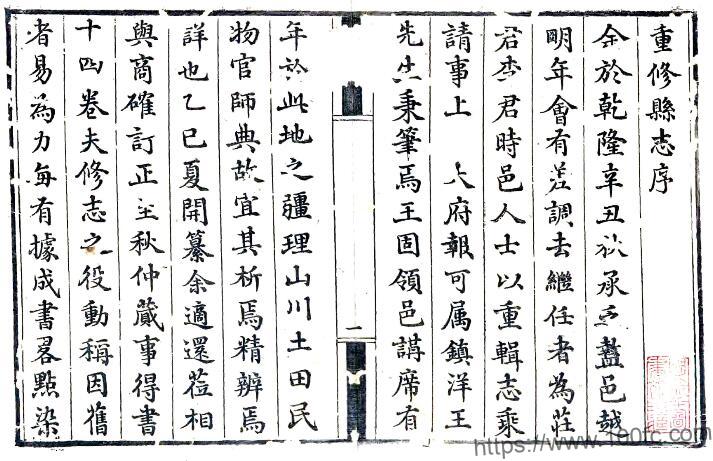 重修縣志序
余於乾隆辛丑秋承乏盩邑越
明年會有差調去繼任者為莊
君李君時邑人士以重輯志乘
請事上 大府報可属鎮洋王
先生秉筆焉王固領邑講席有
一
年於此地之疆理山川土田民
物官師典故宜其析焉精辨焉
詳也乙巳夏開纂余適還蒞相
與商確訂正至秋仲蕆事得書
十四卷夫修志之役動稱因舊
者易為力每有據成書畧點染